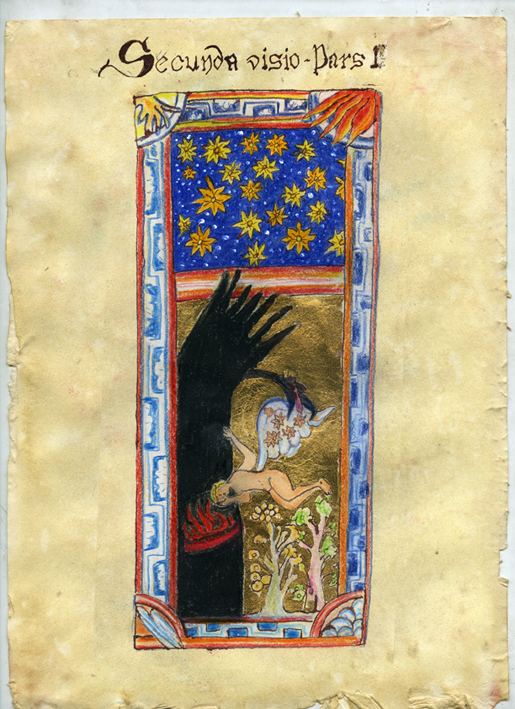 Secunda visio - Pars I